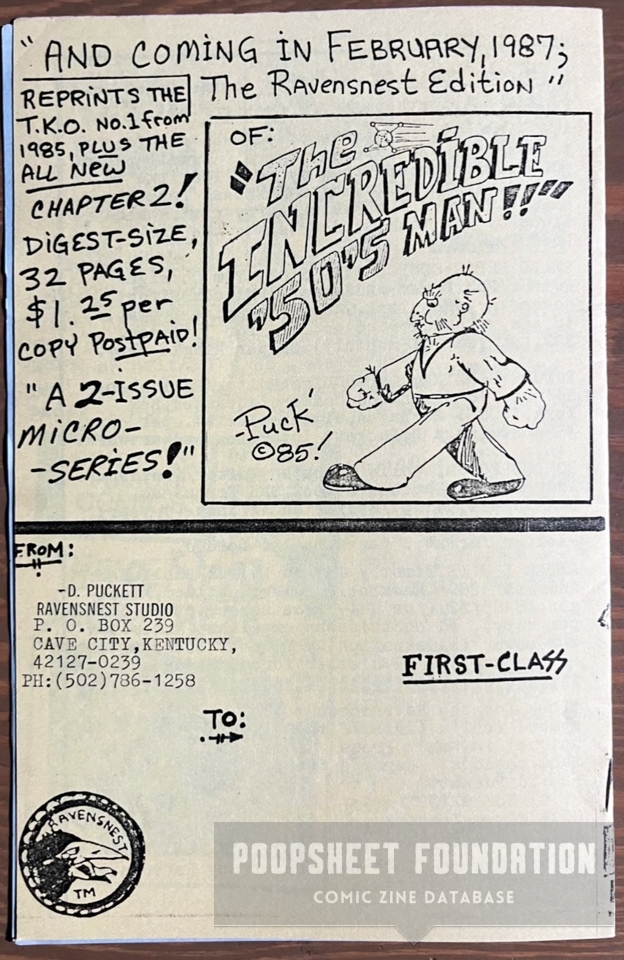 "AND COMING IN FEBRUARY, 1987;
The Ravensnest Edition"
REPRINTS THE
T.K.O. No.1 from
1985, PLUS THE
ALL NEW
CHAPTER 2!
DIGEST-SIZE,
32 PAGES,
$1.25 per
COPY Postpaid!
"A 2-ISSUE
MICRO-
-SERIES!"
OF:
"The
INCREDIBLE
'50'S MAN!!"
-Puck'
©85!
FROM:
-D. PUCKETT
RAVENSNEST STUDIO
P. O. BOX 239
CAVE CITY,KENTUCKY,
42127-0239
PH:(502)786-1258
FIRST-CLASS
TO:
RAVENSNEST
TM
POOPSHEET FOUNDATION
COMIC ZINE DATABASE